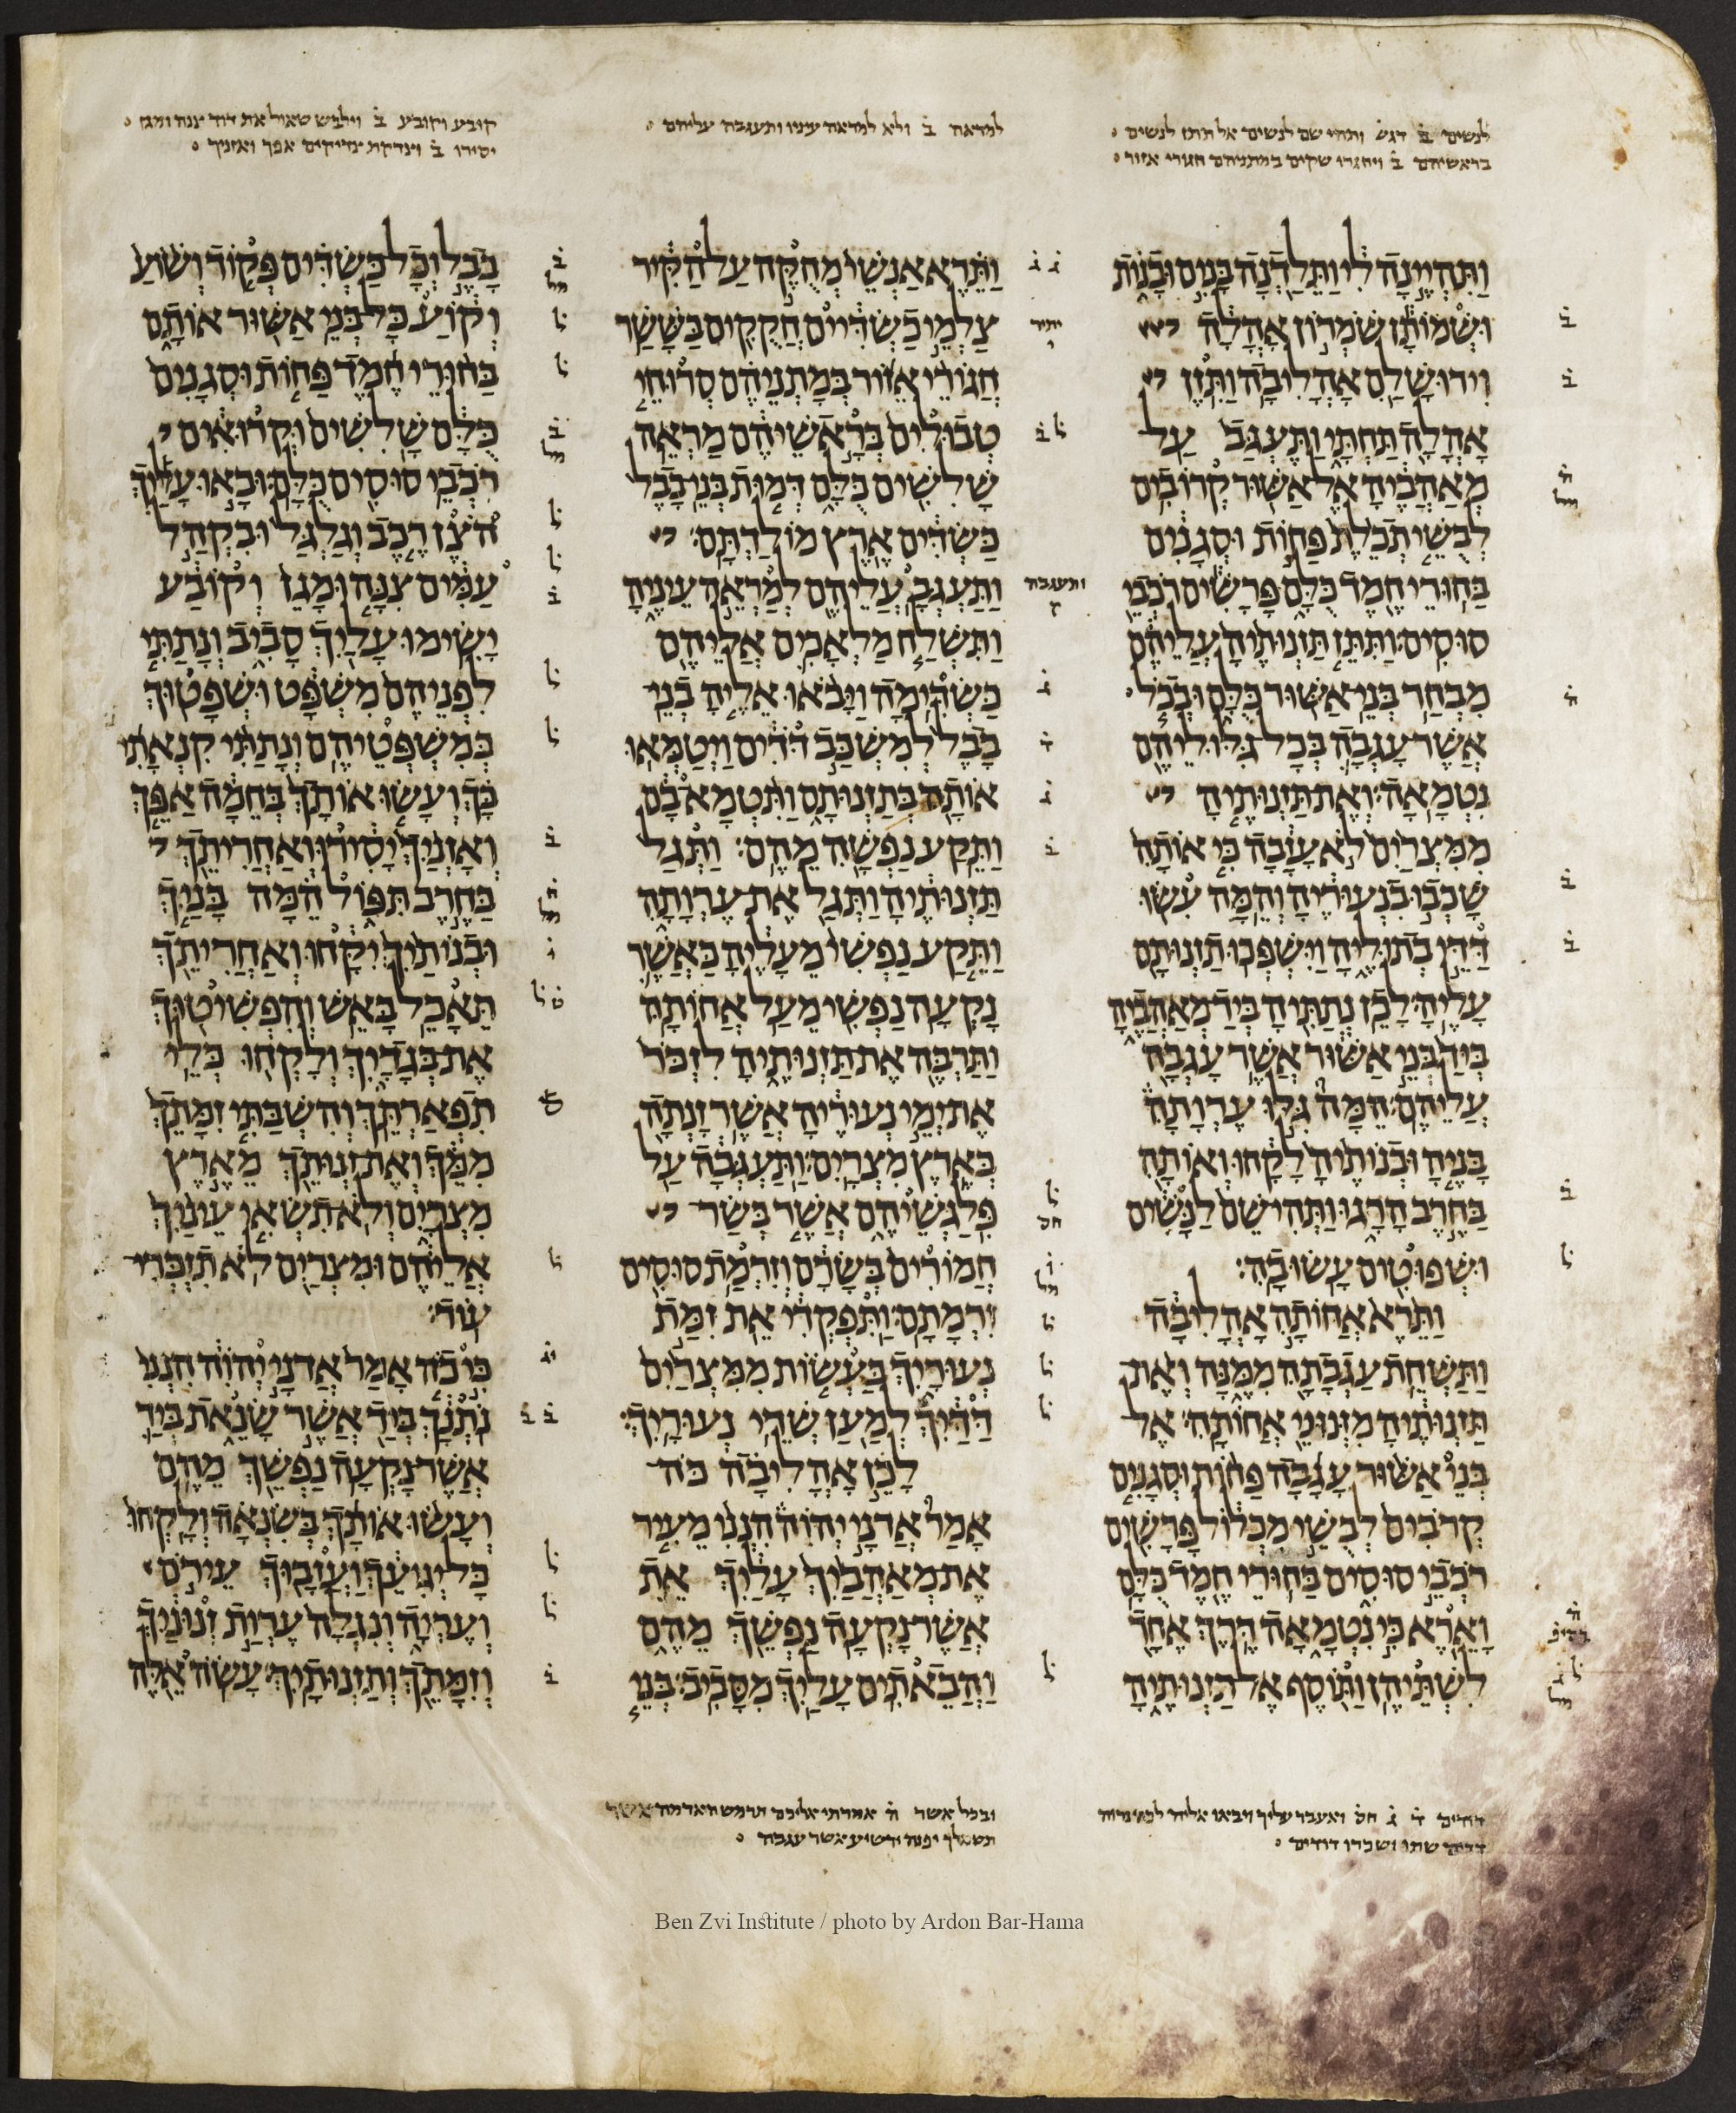 לנשים ב דגש ותהי שם לנשים אל תתן לנשים
בראשיהם ב ויחגרו שקים במתניהם חגורי אזור
למראה ב ולא למראה עיניו ותעגבה עליהם
קובע וקובע ב וילבש שאול את דוד צנה ומגן
יסירו ב וינדקת ינדיקים אפך ואזניך
וַתִּהְיֶינָה לִי וַתֵּלַדְנָה בָּנִים וּבָנוֹת
וּשְׁמוֹתָן שֹׁמְרוֹן אָהֳלָה
וִירוּשָׁלַ͏ִם אָהֳלִיבָה וַתִּזֶן
אָהֳלָה תַּחְתָּי וַתַּעְגַּב עַל
מְאַהֲבֶיהָ אֶל אַשּׁוּר קְרוֹבִים
לְבֻשֵׁי תְכֵלֶת פַּחוֹת וּסְגָנִים
בַּחוּרֵי חֶמֶד כֻּלָּם פָּרָשִׁים רֹכְבֵי
סוּסִים׃ וַתִּתֵּן תַּזְנוּתֶיהָ עֲלֵיהֶם
מִבְחַר בְּנֵי אַשּׁוּר כֻּלָּם וּבְכֹל
אֲשֶׁר עָגְבָה בְּכָל גִּלּוּלֵיהֶם
נִטְמָאָה׃ וְאֶת תַּזְנוּתֶיהָ
מִמִּצְרַיִם לֹא עָזָבָה כִּי אוֹתָהּ
שָׁכְבוּ בִנְעוּרֶיהָ וְהֵמָּה עִשּׂוּ
דַּדֵּי בְתוּלֶיהָ וַיִּשְׁפְּכוּ תַזְנוּתָם
עָלֶיהָ׃ לָכֵן נְתַתִּיהָ בְּיַד מְאַהֲבֶיהָ
בְּיַד בְּנֵי אַשּׁוּר אֲשֶׁר עָגְבָה
עֲלֵיהֶם׃ הֵמָּה גִּלּוּ עֶרְוָתָהּ
בָּנֶיהָ וּבְנוֹתֶיהָ לָקָחוּ וְאוֹתָהּ
בַּחֶרֶב הָרָגוּ וַתְּהִי שֵׁם לַנָּשִׁים
וּשְׁפוּטִים עָשׂוּ בָהּ׃
וַתֵּרֶא אֲחוֹתָהּ אָהֳלִיבָה
וַתַּשְׁחֵת עַגְבָתָהּ מִמֶּנָּה וְאֶת
תַּזְנוּתֶיהָ מִזְּנוּנֵי אֲחוֹתָהּ׃ אֶל
בְּנֵי אַשּׁוּר עָגָבָה פַּחוֹת וּסְגָנִים
קְרֹבִים לְבֻשֵׁי מִכְלוֹל פָּרָשִׁים
רֹכְבֵי סוּסִים בַּחוּרֵי חֶמֶד כֻּלָּם
וָאֵרֶא כִּי נִטְמָאָה דֶּרֶךְ אֶחָד
לִשְׁתֵּיהֶן וַתּוֹסֶף אֶל תַּזְנוּתֶיהָ
וַתֵּרֶא אַנְשֵׁי מְחֻקֶּה עַל הַקִּיר
צַלְמֵי כַשְׂדִּיִּים חֲקֻקִים בַּשָּׁשַׁר
חֲגוֹרֵי אֵזוֹר בְּמָתְנֵיהֶם סְרוּחֵי
טְבוּלִים בְּרָאשֵׁיהֶם מַרְאֵה
שָׁלִשִׁים כֻּלָּם דְּמוּת בְּנֵי בָבֶל
כַּשְׂדִּים אֶרֶץ מוֹלַדְתָּם׃
וַתַּעְגְּבָ עֲלֵיהֶם לְמַרְאֵה עֵינֶיהָ
וַתִּשְׁלַח מַלְאָכִים אֲלֵיהֶם
כַּשְׂדִּימָה וַיָּבֹאוּ אֵלֶיהָ בְנֵי
בָבֶל לְמִשְׁכַּב דֹּדִים וַיְטַמְּאוּ
אוֹתָהּ בְּתַזְנוּתָם וַתִּטְמָא בָם
וַתֵּקַע נַפְשָׁהּ מֵהֶם׃ וַתְּגַל
תַּזְנוּתֶיהָ וַתְּגַל אֶת עֶרְוָתָהּ
וַתֵּקַע נַפְשִׁי מֵעָלֶיהָ כַּאֲשֶׁר
נָקְעָה נַפְשִׁי מֵעַל אֲחוֹתָהּ
וַתַּרְבֶּה אֶת תַּזְנוּתֶיהָ לִזְכֹּר
אֶת יְמֵי נְעוּרֶיהָ אֲשֶׁר זָנְתָה
בְּאֶרֶץ מִצְרָיִם׃ וַתַּעְגְּבָה עַל
פִּלַגְשֵׁיהֶם אֲשֶׁר בְּשַׂר
חֲמוֹרִים בְּשָׂרָם וְזִרְמַת סוּסִים
זִרְמָתָם׃ וַתִּפְקְדִי אֵת זִמַּת
נְעוּרָיִךְ בַּעְשׂוֹת מִמִּצְרַיִם
דַּדַּיִךְ לְמַעַן שְׁדֵי נְעוּרָיִךְ׃
לָכֵן אָהֳלִיבָה כֹּה
אָמַר אֲדֹנָי יְהוִה הִנְנִי מֵעִיר
אֶת מְאַהֲבַיִךְ עָלַיִךְ אֵת
אֲשֶׁר נָקְעָה נַפְשֵׁךְ מֵהֶם
וַהֲבֵאתִים עָלַיִךְ מִסָּבִיב׃ בְּנֵי
בָבֶל וְכָל כַּשְׂדִּים פְּקוֹד וְשׁוֹעַ
וְקוֹעַ כָּל בְּנֵי אַשּׁוּר אוֹתָם
בַּחוּרֵי חֶמֶד פַּחוֹת וּסְגָנִים
כֻּלָּם שָׁלִשִׁים וּקְרוּאִים
רֹכְבֵי סוּסִים כֻּלָּם׃ וּבָאוּ עָלַיִךְ
הֹצֶן רֶכֶב וְגַלְגַּל וּבִקְהַל
עַמִּים צִנָּה וּמָגֵן וְקוֹבַע
יָשִׂימוּ עָלַיִךְ סָבִיב וְנָתַתִּי
לִפְנֵיהֶם מִשְׁפָּט וּשְׁפָטוּךְ
בְּמִשְׁפְּטֵיהֶם׃ וְנָתַתִּי קִנְאָתִי
בָּךְ וְעָשׂוּ אוֹתָךְ בְּחֵמָה אַפֵּךְ
וְאָזְנַיִךְ יָסִירוּ וְאַחֲרִיתֵךְ
בַּחֶרֶב תִּפּוֹל הֵמָּה בָּנַיִךְ
וּבְנוֹתַיִךְ יִקָּחוּ וְאַחֲרִיתֵךְ
תֵּאָכֵל בָּאֵשׁ׃ וְהִפְשִׁיטוּךְ
אֶת בְּגָדָיִךְ וְלָקְחוּ כְּלֵי
תִפְאַרְתֵּךְ׃ וְהִשְׁבַּתִּי זִמָּתֵךְ
מִמֵּךְ וְאֶת זְנוּתֵךְ מֵאֶרֶץ
מִצְרָיִם וְלֹא תִשְׂאִי עֵינַיִךְ
אֲלֵיהֶם וּמִצְרַיִם לֹא תִזְכְּרִי
עוֹד׃
כִּי כֹה אָמַר אֲדֹנָי יְהוִה הִנְנִי
נֹתְנָךְ בְּיַד אֲשֶׁר שָׂנֵאת בְּיַד
אֲשֶׁר נָקְעָה נַפְשֵׁךְ מֵהֶם׃
וְעָשׂוּ אוֹתָךְ בְּשִׂנְאָה וְלָקְחוּ
כָּל יְגִיעֵךְ וַעֲזָבוּךְ עֵירֹם
וְעֶרְיָה וְנִגְלָה עֶרְוַת זְנוּנַיִךְ
וְזִמָּתֵךְ וְתַזְנוּתָיִךְ׃ עָשֹׂה אֵלֶּה
דודים ד ג חס ואעבר עליך ויבאו אליה
שתו ושכרו דודים
ובכל אשר ה אמרתי אליכם תרמש האדמה אשר
יפנה ירשיע אשר עגבה
Ben Zvi Institute / photo by Ardon Bar-Hama